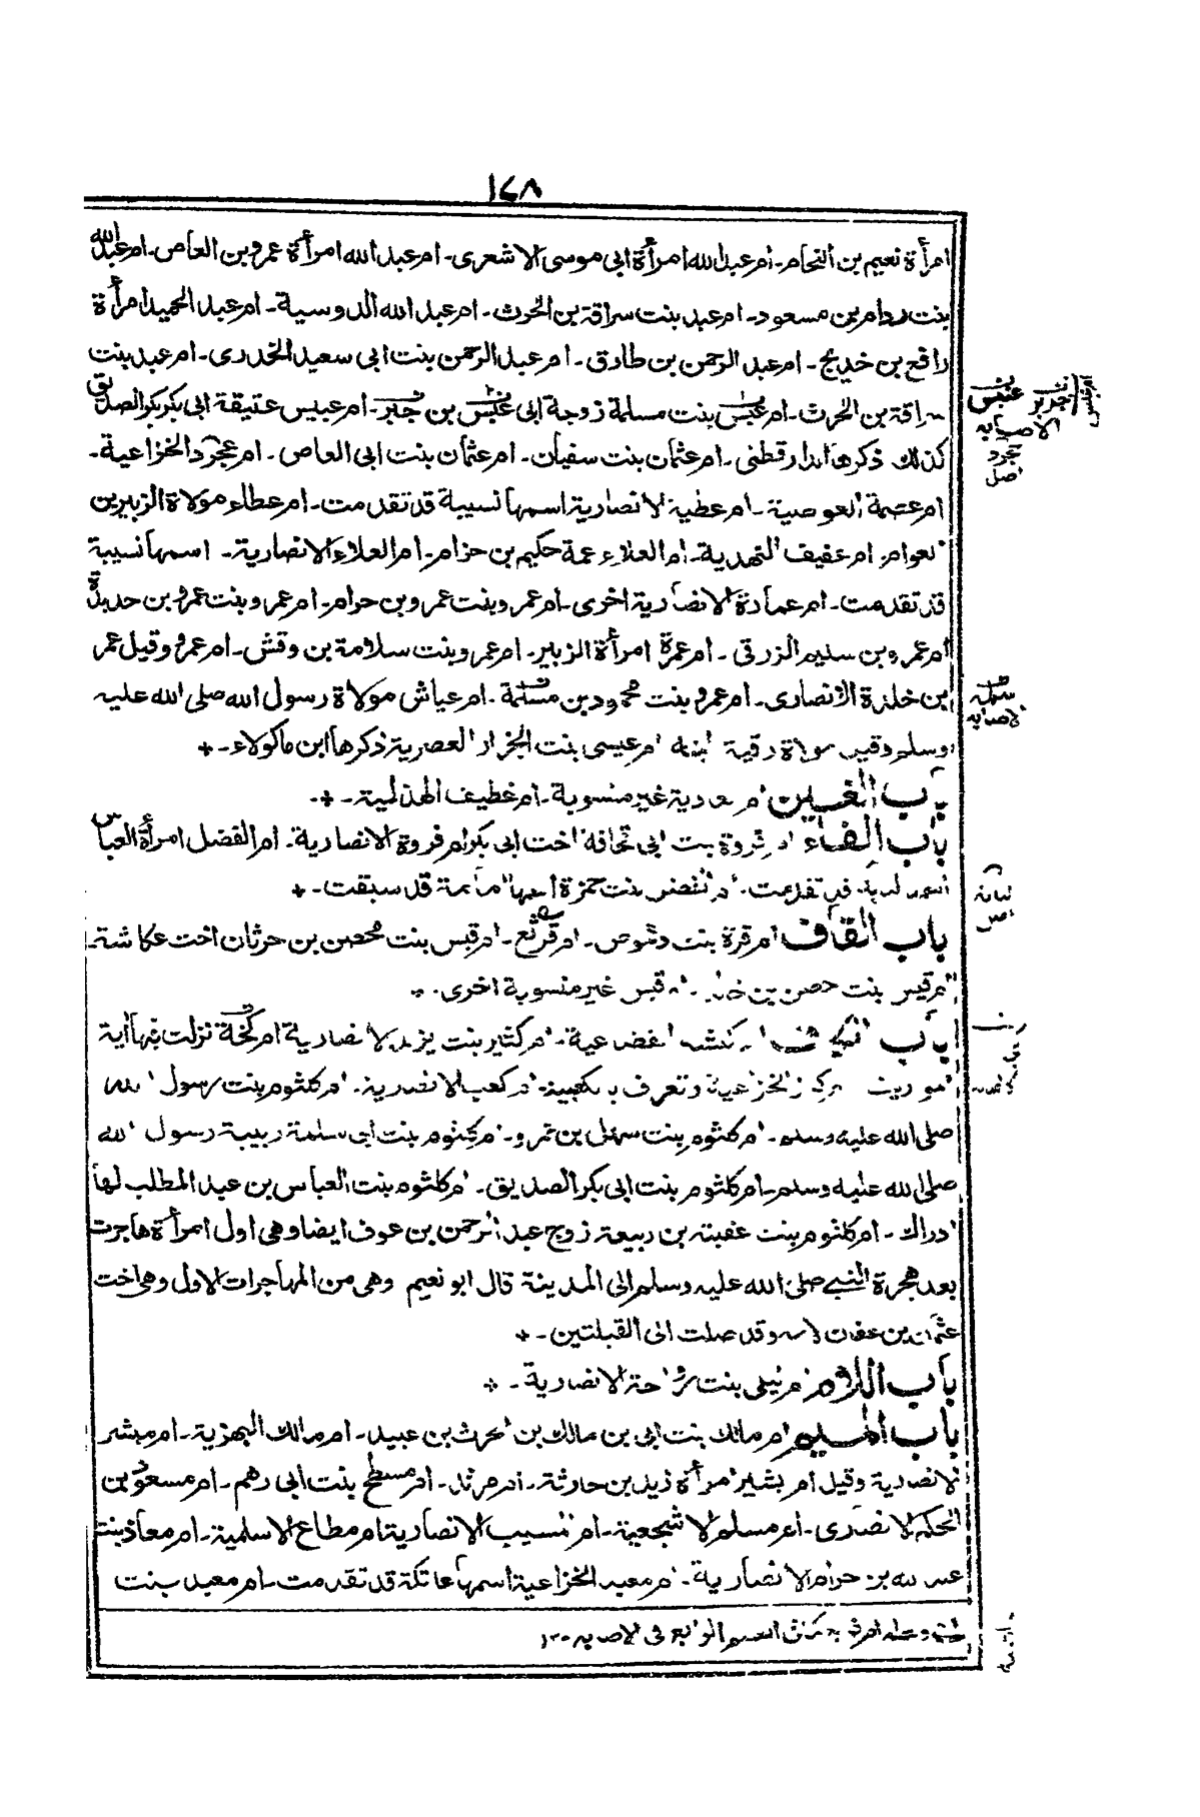 ١٤٨
امرأة نعيم بن النحام۔ ام عبد الله امرأة ابى موسى الاشعرى۔ ام عبد الله امرأة عمرو بن العاص۔ ام عبد الله
بنت بن مسعود۔ ام عبد بنت سراقة بن الحرث۔ ام عبد الله الدوسية۔ ام عبد الحميد امرأة
رافع بن خديج۔ ام عبد الرحمن بن طارق۔ ام عبد الرحمن بنت ابى سعيد الخدرى۔ ام عبد بنت
سراقة بن الحرث۔ ام عبس بنت مسلمة زوجة ابى عبس بن جبر۔ ام عبيس عتيقة ابى بكر بكر الصديق
كذلك ذكرها الدارقطنى۔ ام عثمان بنت سفيان۔ ام عثمان بنت ابى العاص۔ ام عجرد الخزاعية۔
ام عصمة العوصية۔ ام عطية الانصارية اسمها نسيبة قد تقدمت۔ ام عطاء مولاة الزبير بن
العوام۔ ام عفيف النهدية۔ ام العلاء عمة حكيم بن حزام۔ ام العلاء الانصارية۔ اسمها نسيبة
قد تقدمت۔ ام عمارة الانصارية اخرى۔ ام عمرو بنت عمرو بن حرام۔ ام عمرو بنت عمرو بن حديدة
ام عمرو بن سليم الزرقى۔ ام عمرة امرأة الزبير۔ ام عمرو بنت سلامة بن وقش۔ ام عمرو وقيل عمر
ابن خلدة الانصارى۔ ام عمرو بنت محمود بن مسلمة۔ ام عياش مولاة رسول الله صلى الله عليه
وسلم وقيل مولاة رقية ابنته ام عيسى بنت الجزار العصرية ذكرها ابن ماكولاء۔
باب الغين ام غادية غير منسوبة۔ ام غطيف الهذلية۔
باب الفاء ام فروة بنت ابى قحافة اخت ابى بكر ام فروة الانصارية۔ ام الفضل امرأة العباس
اسمها لبابة قد تقدمت۔ ام الفضل بنت حمزة اسمها امامة قد سبقت۔
باب القاف ام قرة بنت دعموص۔ ام قرثع۔ ام قيس بنت محصن بن حرثان اخت عكاشة۔
ام قيس بنت حصن بن ام قيس غير منسوبة اخرى۔
باب الكاف ام كبشة القضاعية۔ ام كثير بنت يزيد الانصارية ام كجة نزلت فيها اية
المواريث ام كرز الخزاعية وتعرف بالكعبية۔ ام كعب الانصرية۔ ام كلثوم بنت رسول الله
صلى الله عليه وسلم۔ ام كلثوم بنت سهيل بن عمرو۔ ام كلثوم بنت ابى سلمة ربيبة رسول الله
صلى الله عليه وسلم۔ ام كلثوم بنت ابى بكر الصديق۔ ام كلثوم بنت العباس بن عبد المطلب لها
ادراك۔ ام كلثوم بنت عقبة بن ربيعة زوج عبد الرحمن بن عوف ايضا وهى اول امرأة هاجرت
بعد هجرة النبى صلى الله عليه وسلم الى المدينة قال ابو نعيم وهى من المهاجرات الاول وهى اخت
عثمان بن عفان لامه وقد صلت الى القبلتين۔
باب اللام ام ليلى بنت رواحة الانصارية۔
باب الميم ام مالك بنت ابى بن مالك بن الحرث بن عبيد۔ ام مالك البهزية۔ ام مبشر
الانصارية وقيل ام بشير امرأة زيد بن حارثة۔ ام مرثد۔ ام مسطح بنت ابى رهم۔ ام مسعود بن
الحكم الانصارى۔ ام مسلم الاشجعية۔ ام المسيب الانصارية ام مطاع الاسلمية۔ ام معاذ بنت
عبد الله بن حرام الانصارية۔ ام معبد الخزاعية اسمها عاتكة قد تقدمت۔ ام معبد بنت
القسم الرابع فى الاصابه ١٢
عنبس
الاصابه
عجرد
اصل
مسلمة
الاصابه
لبابة
اصل